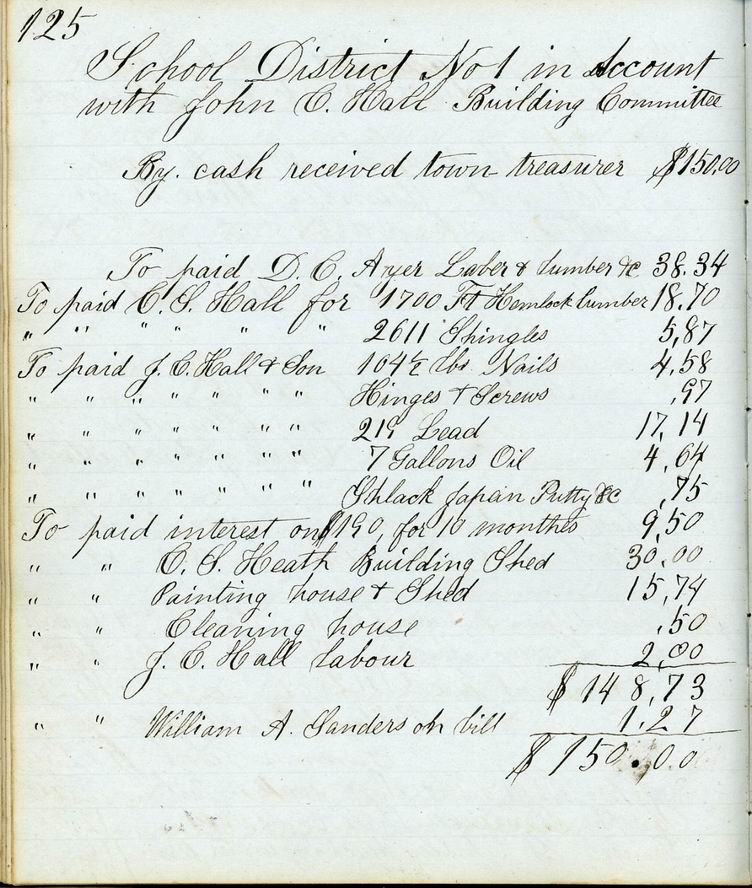 125
School District No 1 in Account
with John C. Hall Building Committee
By. cash received town treasurer $150.00
To paid D. C. Ayer Laber & lumber &c 38.34
To paid C. S. Hall for 1700 Ft Hemlock lumber 18.70
" " " " " " 2611 Shingles 5,87
To paid J. C. Hall & Son 104½ lbs. Nails 4,58
" " " " " " " Hinges & Screws ,97
" " " " " " " 219 Lead 17,14
" " " " " " " 7 Gallons Oil 4,64
" " " " " " " Shlack Japan Putty &c ,75
To paid interest on $190, for 10 monthes 9,50
" " C. S. Heath Building Shed 30.00
" " Painting house & Shed 15,74
" " Cleaning house .50
" " J. C. Hall labour 2,00
$148,73
" " William A. Sanders on bill 1.27
$150.00